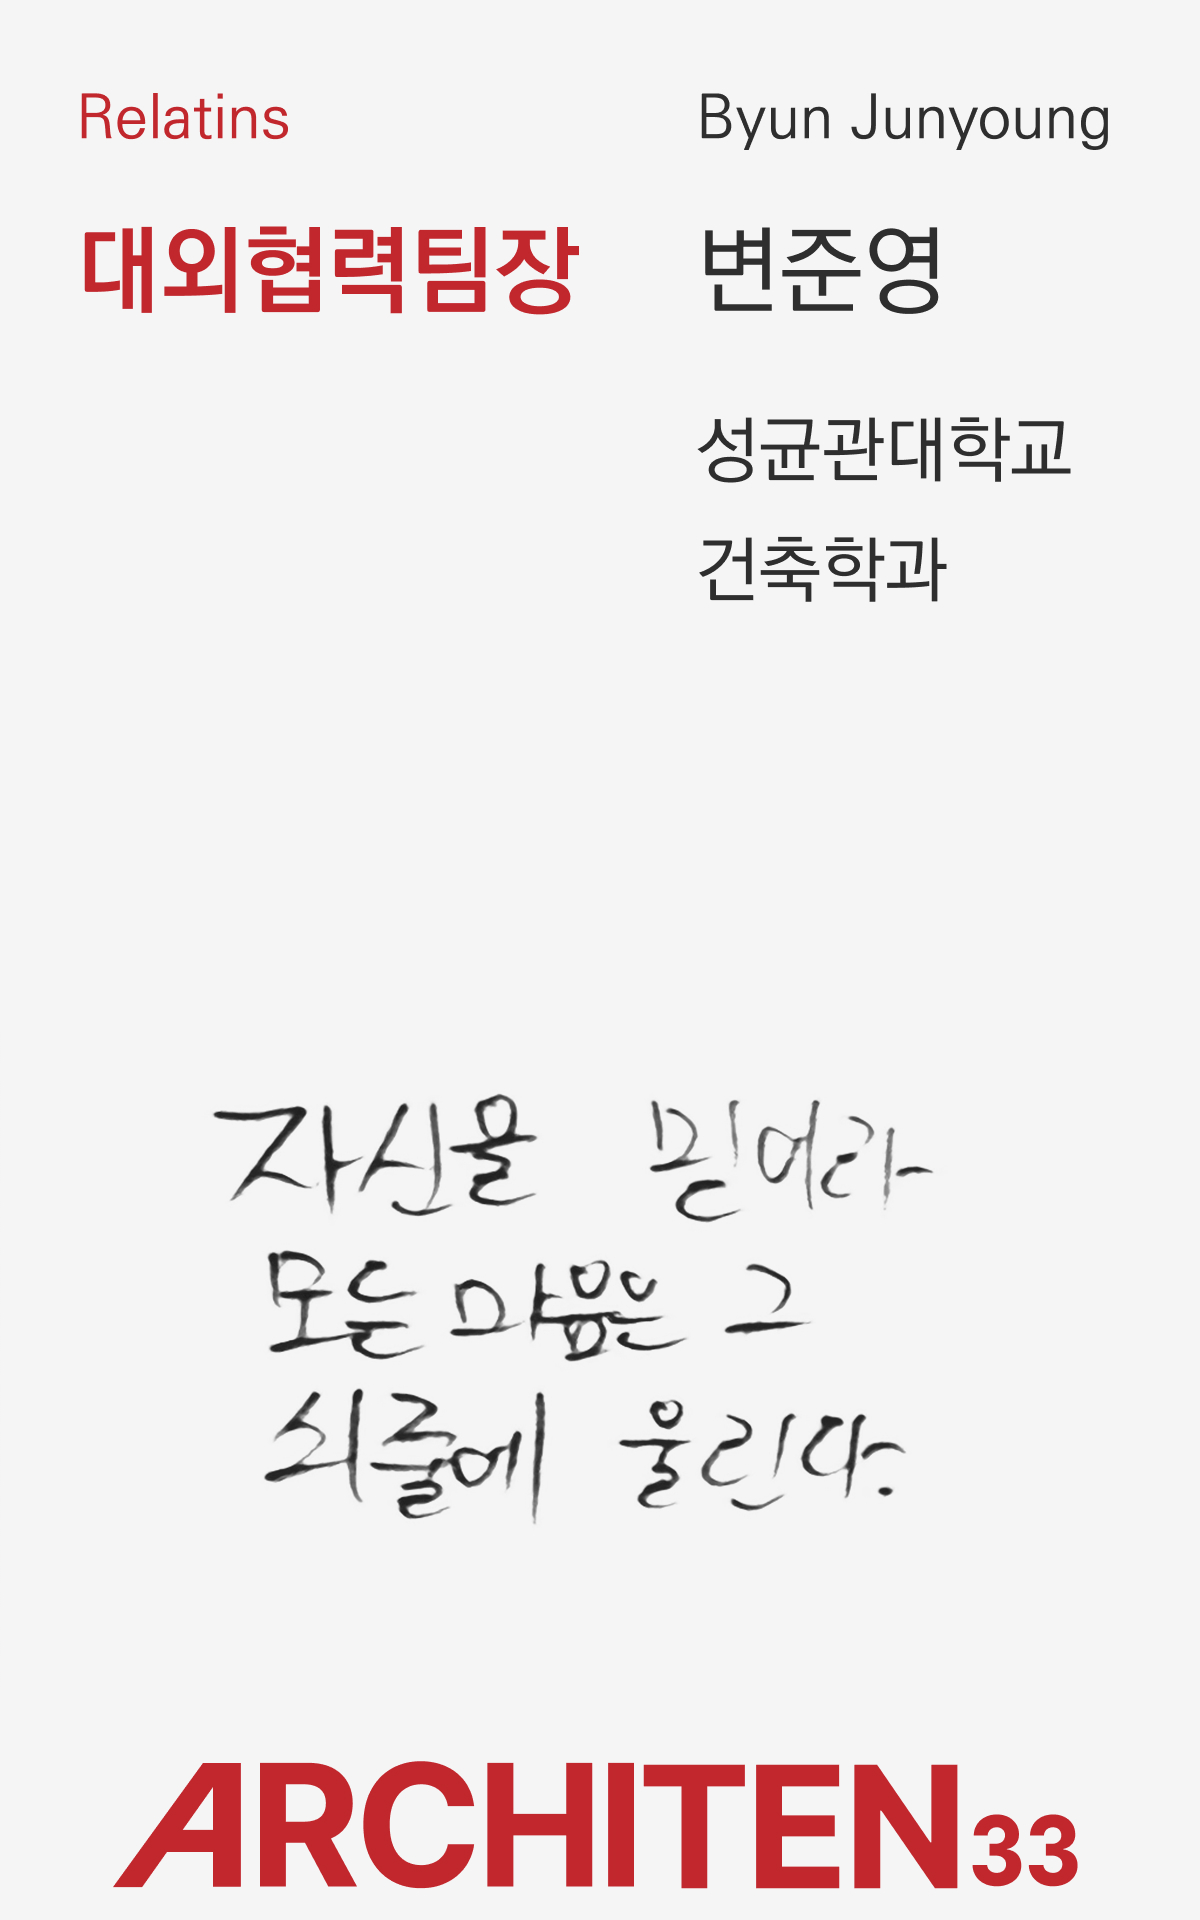 Relatins
Byun Junyoung
대외협력팀장
변준영
성균관대학교
건축학과
자신을 믿어라
모든 마음은 그
쇠줄에 울린다.
ARCHITEN33